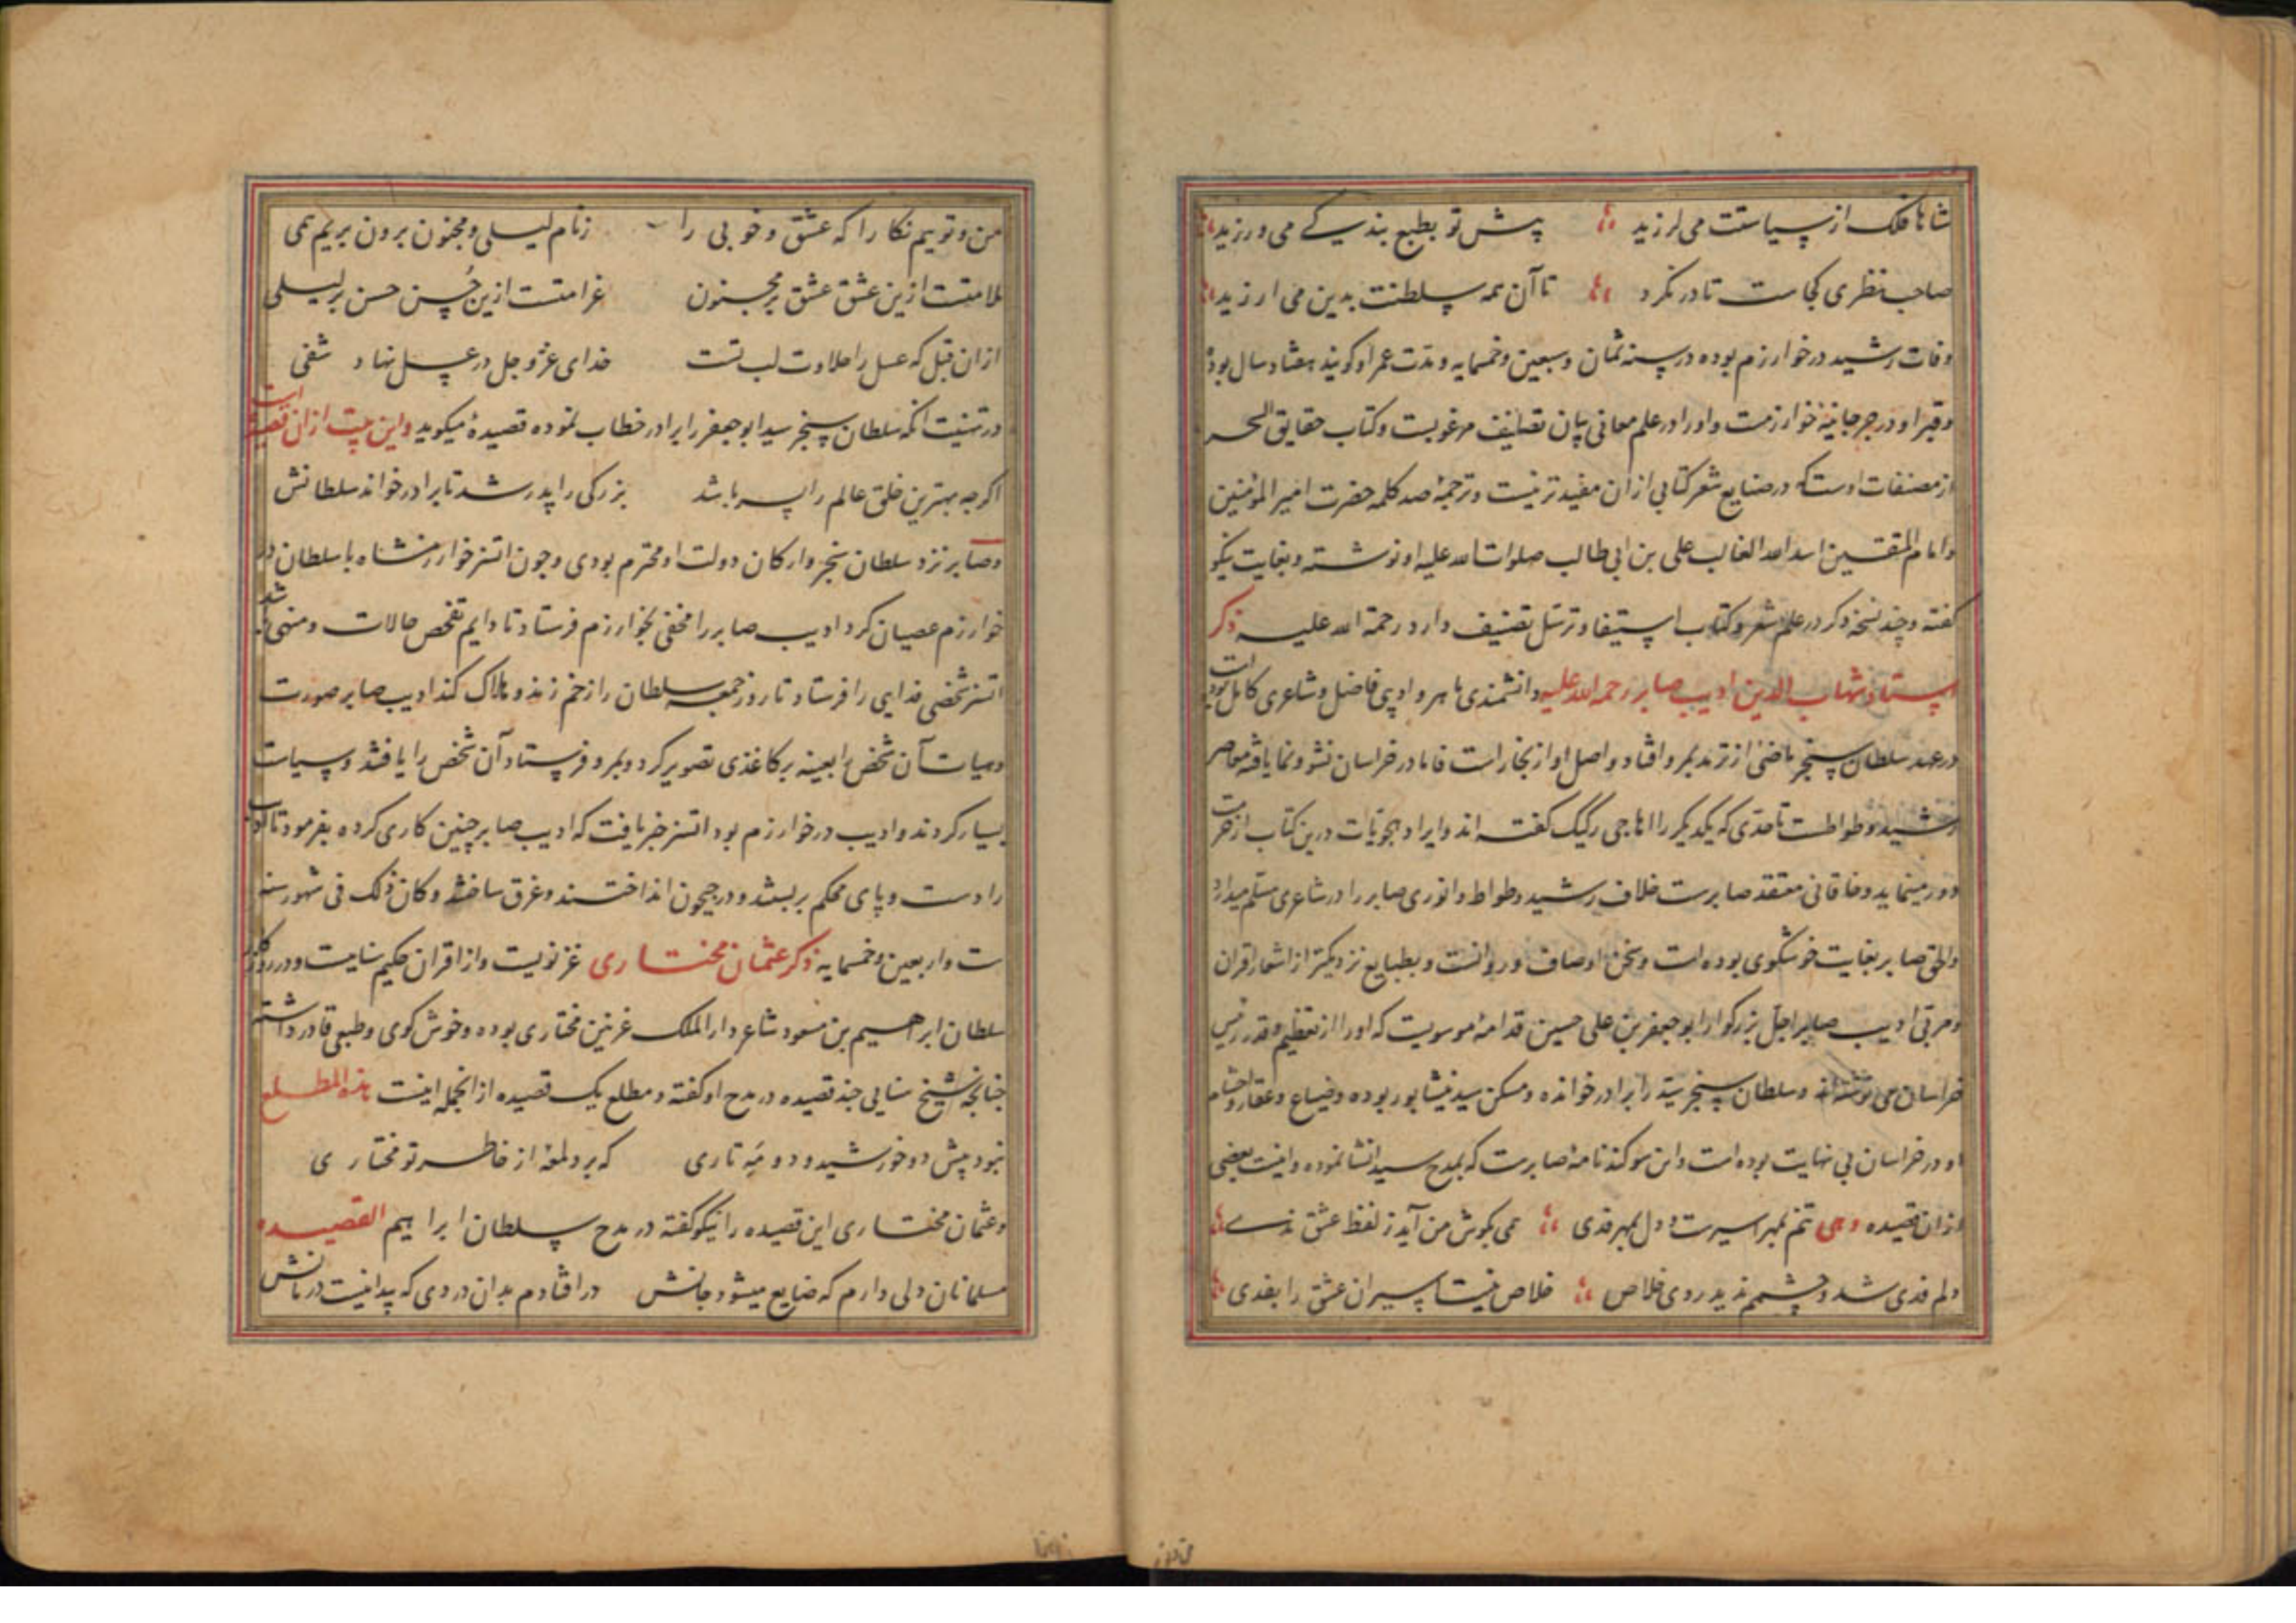 شاها فلک از سیاستت می لرزید پیش تو بطبع بندگی می ورزید
صاحب نظری کجاست تا در نگرد تا آن همه سلطنت بدین می ارزید
وفات رشید در خوارزم بوده در سنه ثمان و سبعین و خمسمایه و مدت عمر او گویند هفتاد سال بود
و قبر او در جرجانیه خوارزمست و او را در علم معانی بیان تصانیف مرغوبست و کتاب حقایق السحر
از مصنفات اوست که در صنایع شعر کتابی از آن مفیدتر نیست و ترجمهٔ صد کلمه حضرت امیر المؤمنین
و امام المتقین اسد الله الغالب علی بن ابی طالب صلوات الله علیه او نوشته و بغایت نیکو
گفته و چند نسخه دکر در علم شعر و کتاب استیفا و ترسل تصنیف دارد رحمة الله علیه ذکر
استاد شهاب الدین ادیب صابر رحمه الله علیه دانشمندی ماهر و ادیبی فاضل و شاعری کامل بوده است
در عهد سلطان سنجر ماضی از ترمد بمرو افتاد و اصل او از بخاراست فاما در خراسان نشو و نما یافته معاصر
رشید وطواطست تا حدی که یکدیکر را اهاجی رکیک گفته اند و ایراد هجویات درین کتاب از حرمت
دور مینماید و خاقانی معتقد صابرست خلاف رشید وطواط و انوری صابر را در شاعری مسلم میدارد
والحق صابر بغایت خوشگوی بوده است و سخن او صاف و روانست و بطبایع نزدیکتر از اشعار اقران
و مربی ادیب صابر اجل بزرگوار ابو جعفر بن علی حسین قدامهٔ موسویست که او را از تعظیم و قدر رئیس
خراسان می نوشته اند و سلطان سنجر سید را برادر خوانده و مسکن سید نیشابور بوده و ضیاع و عقار و احشام
او در خراسان بی نهایت بوده است و این سوکند نامهٔ صابرست که بمدح سید انشا نموده و اینست بعضی
از ان قصیده وهی تنم بمهر اسیرست و دل بمهر فدی همی بکوش من آید ز لفظ عشق ندی
دلم فدی شد و چشمم ندید روی خلاص خلاص نیست اسیران عشق را بفدی
من و توییم نکارا که عشق و خوبی را ز نام لیلی و مجنون برون بریم همی
ملامتست ازین عشق عشق بر مجنون غرامتست ازین حُسن حسن بر لیلی
از ان قبل که عسل را حلاوت لب تست خدای عز و جل در عسل نهاد شفی
در تهنیت آنکه سلطان سنجر سید ابو جعفر را برادر خطاب نموده قصیدهٔ میکوید و این بیت از ان قصیده است
اگر چه بهترین خلق عالم را پسر باشد بزرگی را پدر شد تا برادر خواند سلطانش
و صابر نزد سلطان سنجر و ارکان دولت او محترم بودی و چون اتسز خوارزمشاه با سلطان در
خوارزم عصیان کرد ادیب صابر را مخفی بخوارزم فرستاد تا دایم تفحص حالات و منهی باشد
اتسز شخصی فدایی را فرستاد تا روز جمعه سلطان را زخم زند و هلاک کند ادیب صابر صورت
و هیات آن شخص را بعینه بر کاغذی تصویر کرد و بمرو فرستاد آن شخص را یافتند و سیاست
بسیار کردند و ادیب در خوارزم بود اتسز خبر یافت که ادیب صابر چنین کاری کرده بفرمود تا ادیب
را دست و پای محکم بربستند و در جیحون انداختند و غرق ساختند و کان ذلک فی شهور سنه
ست و اربعین و خمسمایه ذکر عثمان مختاری غزنویست و از اقران حکیم سنایست و در روزگار
سلطان ابراهیم بن مسعود شاعر دار الملک غزنین مختاری بوده و خوش کوی و طبعی قادر داشته
چنانچه شیخ سنایی چند قصیده در مدح او گفته و مطلع یک قصیده از انجمله اینست هذه المطلع
نبود پیش دو خورشید و دو مَه تاری که برد لمعهٔ از خاطر تو مختاری
و عثمان مختاری این قصیده را نیکو گفته در مدح سلطان ابراهیم القصیده
مسلمانان دلی دارم که ضایع میشود جانش در افتادم بدان دردی که پیدا نیست درمانش